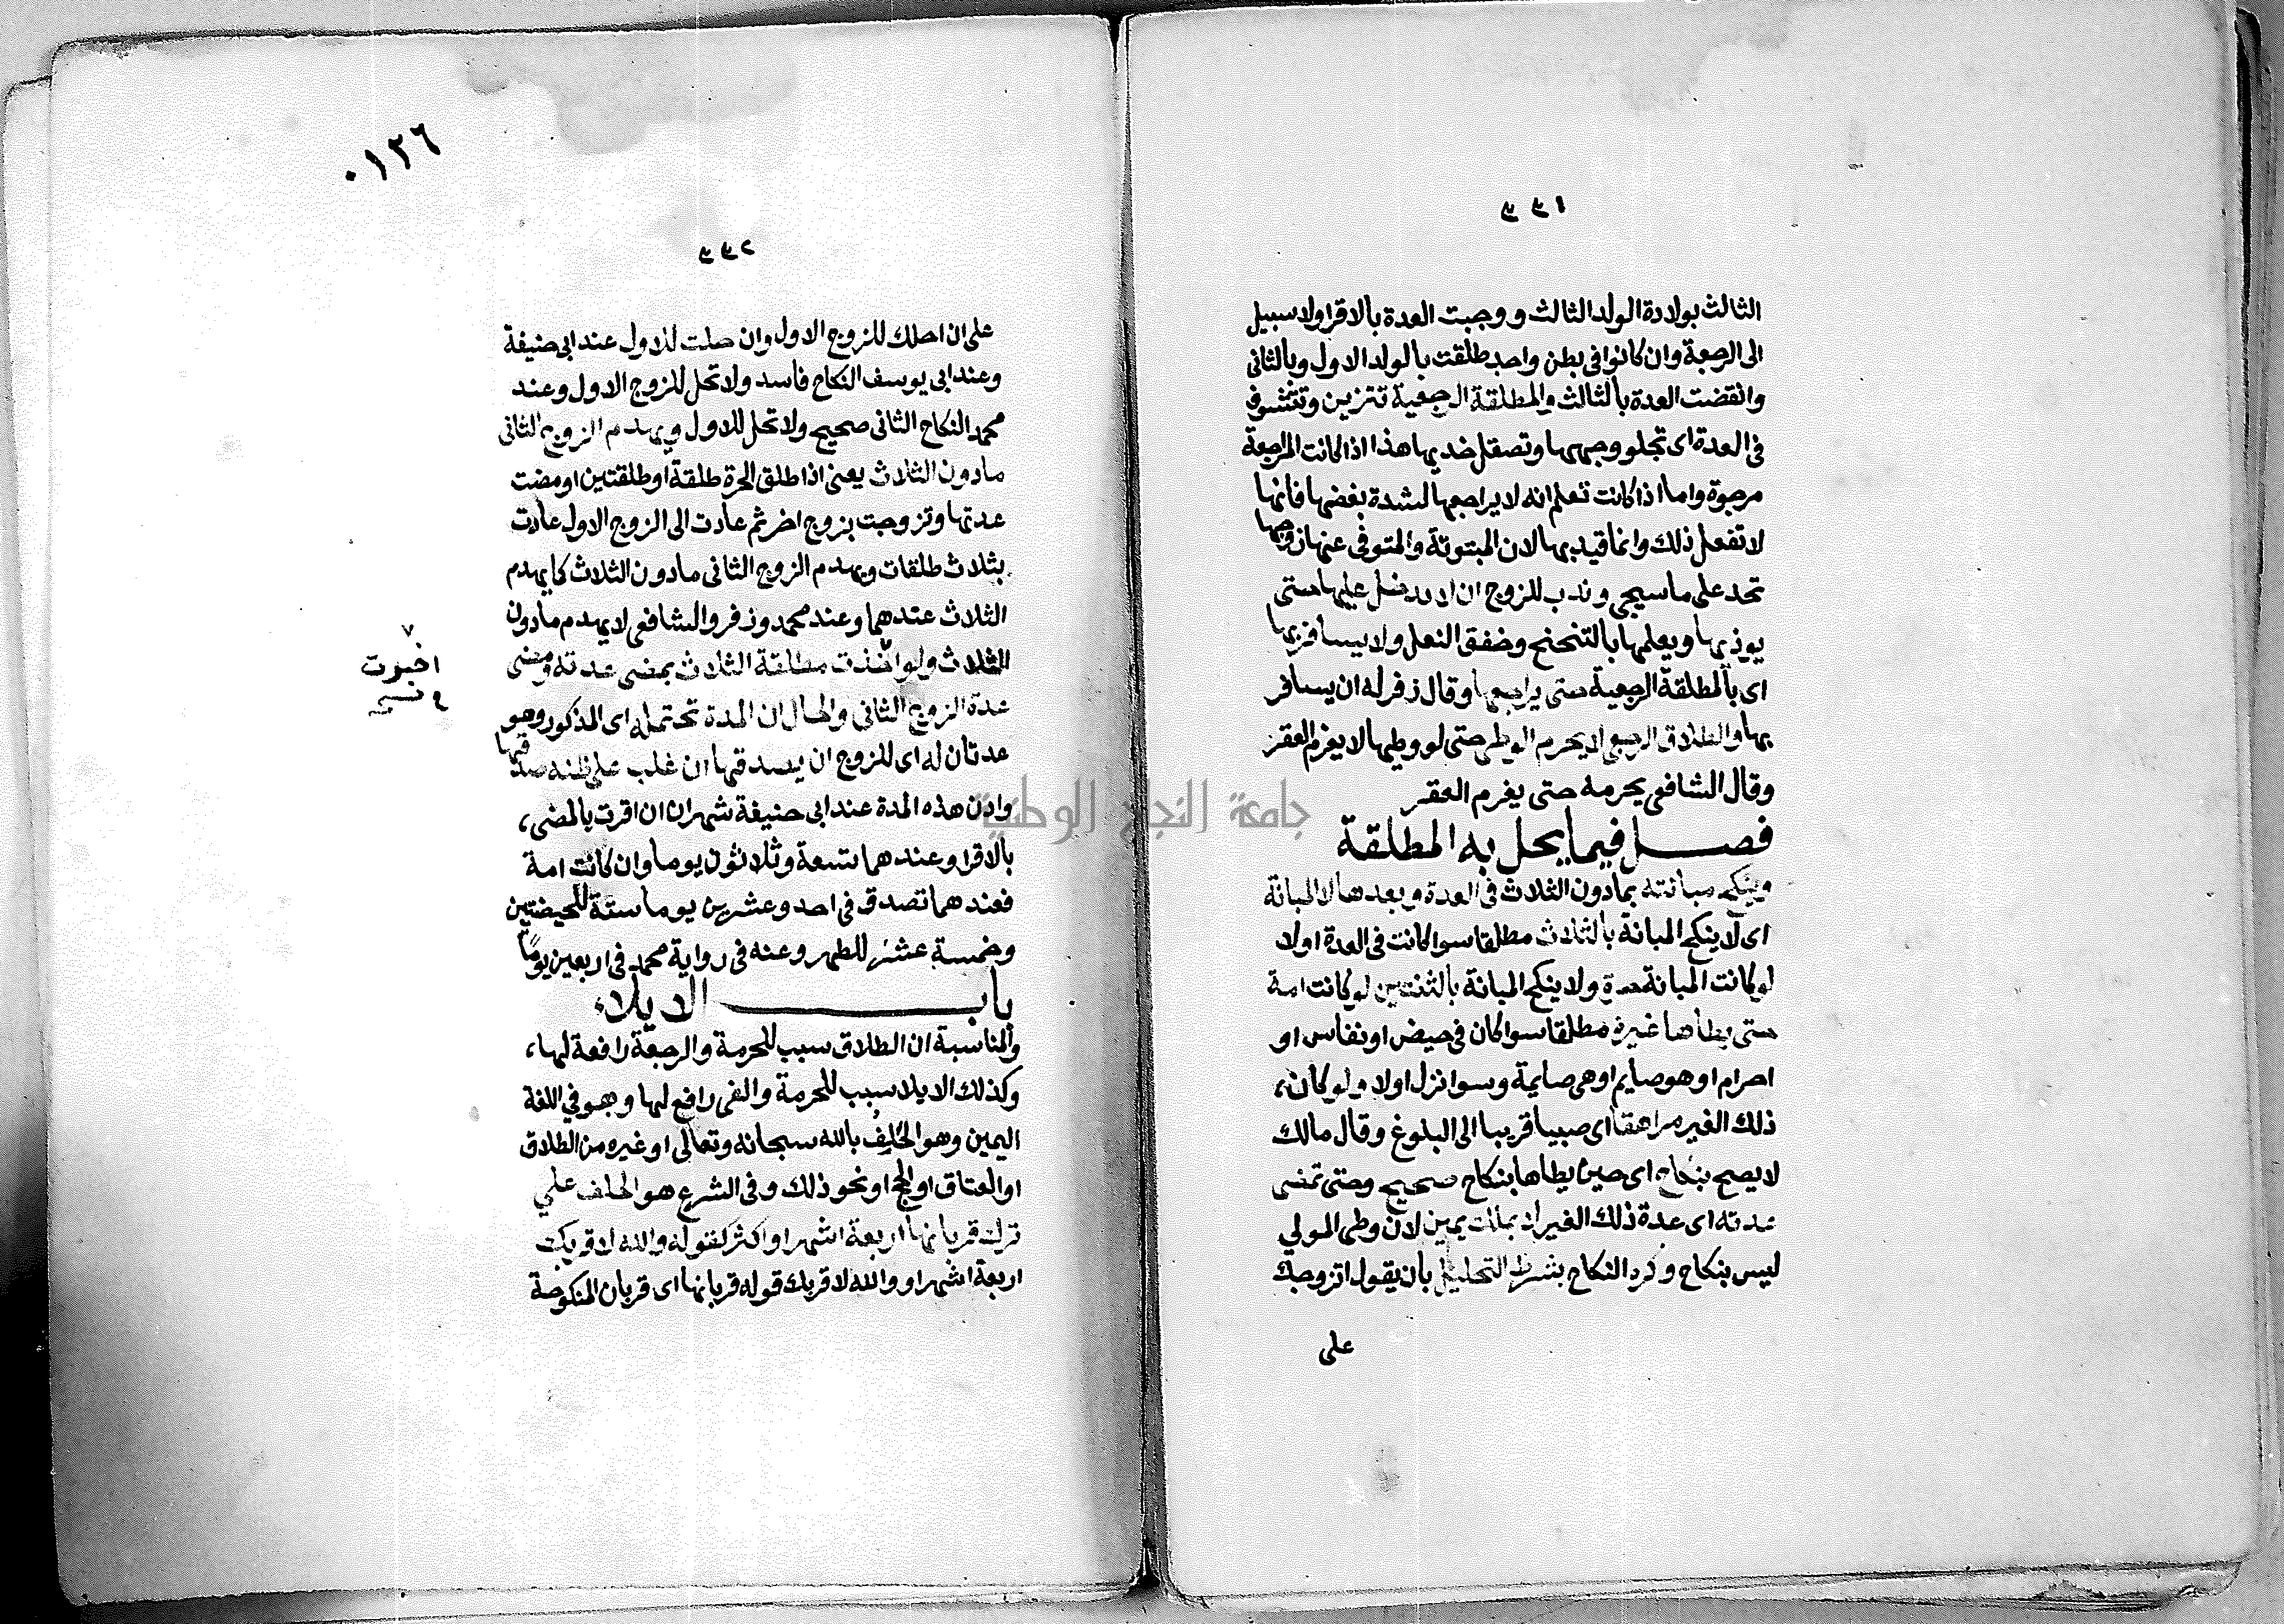 ٣٣١
الثالث بولادة الولد الثالث ووجبت العدة بالاقرا ولا سبيل
الى الرجعة وان كانوا في بطن واحد طلقت بالولد الاول وبالثاني
وانقضت العدة بالثالث والمطلقة الرجعية تتزين وتتشوف
في العدة اى تجلو وجهها وتصقل خديها هذا اذا كانت المراجعة
مرجوة واما اذا كانت تعلم انه لا يراجعها لشدة بغضها فانها
لا تفعل ذلك وانما قيد بها لان المبتوتة والمتوفى عنها زوجها
تحد على ما سيجي وندب للزوج ان لا يدخل عليها حتى
يوذنها ويعلمها بالتنحنح وخفق النعل ولا يسافر بها
اى بالمطلقة الرجعية حتى يراجعها وقال زفر له ان يسافر
بها والطلاق الرجعي لا يحرم الوطي حتى لو وطيها لا يغرم العقر
وقال الشافعي يحرمه حتى يغرم العقر
فصل فيما يحل به المطلقة
وينكح مبانته بما دون الثلاث في العدة وبعدها لا المبانة
اى لا ينكح المبانة بالثلاث مطلقا سوا كانت في العدة اولا
لو كانت المبانة حرة ولا ينكح المبانة بالثنتين لو كانت امة
حتى يطاها غيره مطلقا سوا كان في حيض او نفاس او
احرام او هو صايم او هي صايمة وسوا انزل اولا ولو كان
ذلك الغير مراهقا اى صبيا قريبا الى البلوغ وقال مالك
لا يصح بنكاح اى حين يطاها بنكاح صحيح وحتى تمضى
عدته اى عدة ذلك الغير لا بملك يمين لان وطى المولي
ليس بنكاح وكره النكاح بشرط التحليل بان يقول اتزوجك
على
٠١٢٦
٣٣٢
على ان احلك للزوج الاول وان حلت للاول عند ابى حنيفة
وعند ابى يوسف النكاح فاسد ولا تحل للزوج الاول وعند
محمد النكاح الثاني صحيح ولا تحل للاول ويهدم الزوج الثاني
ما دون الثلاث يعنى اذا طلق الحرة طلقة او طلقتين او مضت
عدتها وتزوجت بزوج اخر ثم عادت الى الزوج الاول عادت
بثلاث طلقات ويهدم الزوج الثاني ما دون الثلاث كما يهدم
الثلاث عندهما وعند محمد وزفر والشافعي لا يهدم ما دون
الثلاث ولو مطلقة الثلاث بمضى عدته ومضى
اخبرت
نسخه
عدة الزوج الثاني والحال ان المدة تحتمله اى المذكور وهو
عدتان له اى للزوج ان يصدقها ان غلب على ظنه صدقها
وادن هذه المدة عند ابى حنيفة شهران ان اقرت بالمضى،
بالاقرا وعندهما تسعة وثلاثون يوما وان كانت امة
فعندهما تصدق في احد وعشرين يوما ستة للحيضتين
وخمسة عشر للطهر وعنه في رواية محمد في اربعين يوما
باب الايلاء
والمناسبة ان الطلاق سبب للحرمة والرجعة رافعة لها،
وكذلك الايلا سبب للحرمة والفى رافع لها وهو في اللغة
اليمين وهو الحلف بالله سبحانه وتعالى او غيره من الطلاق
او العتاق او الحج او نحو ذلك وفي الشرع هو الحلف على
ترك قربانها اربعة اشهر او اكثر كقوله والله لا قربك
اربعة اشهر او والله لا قربك قوله قربانها اى قربان المنكوحة
جامعة النجاح الوطنية